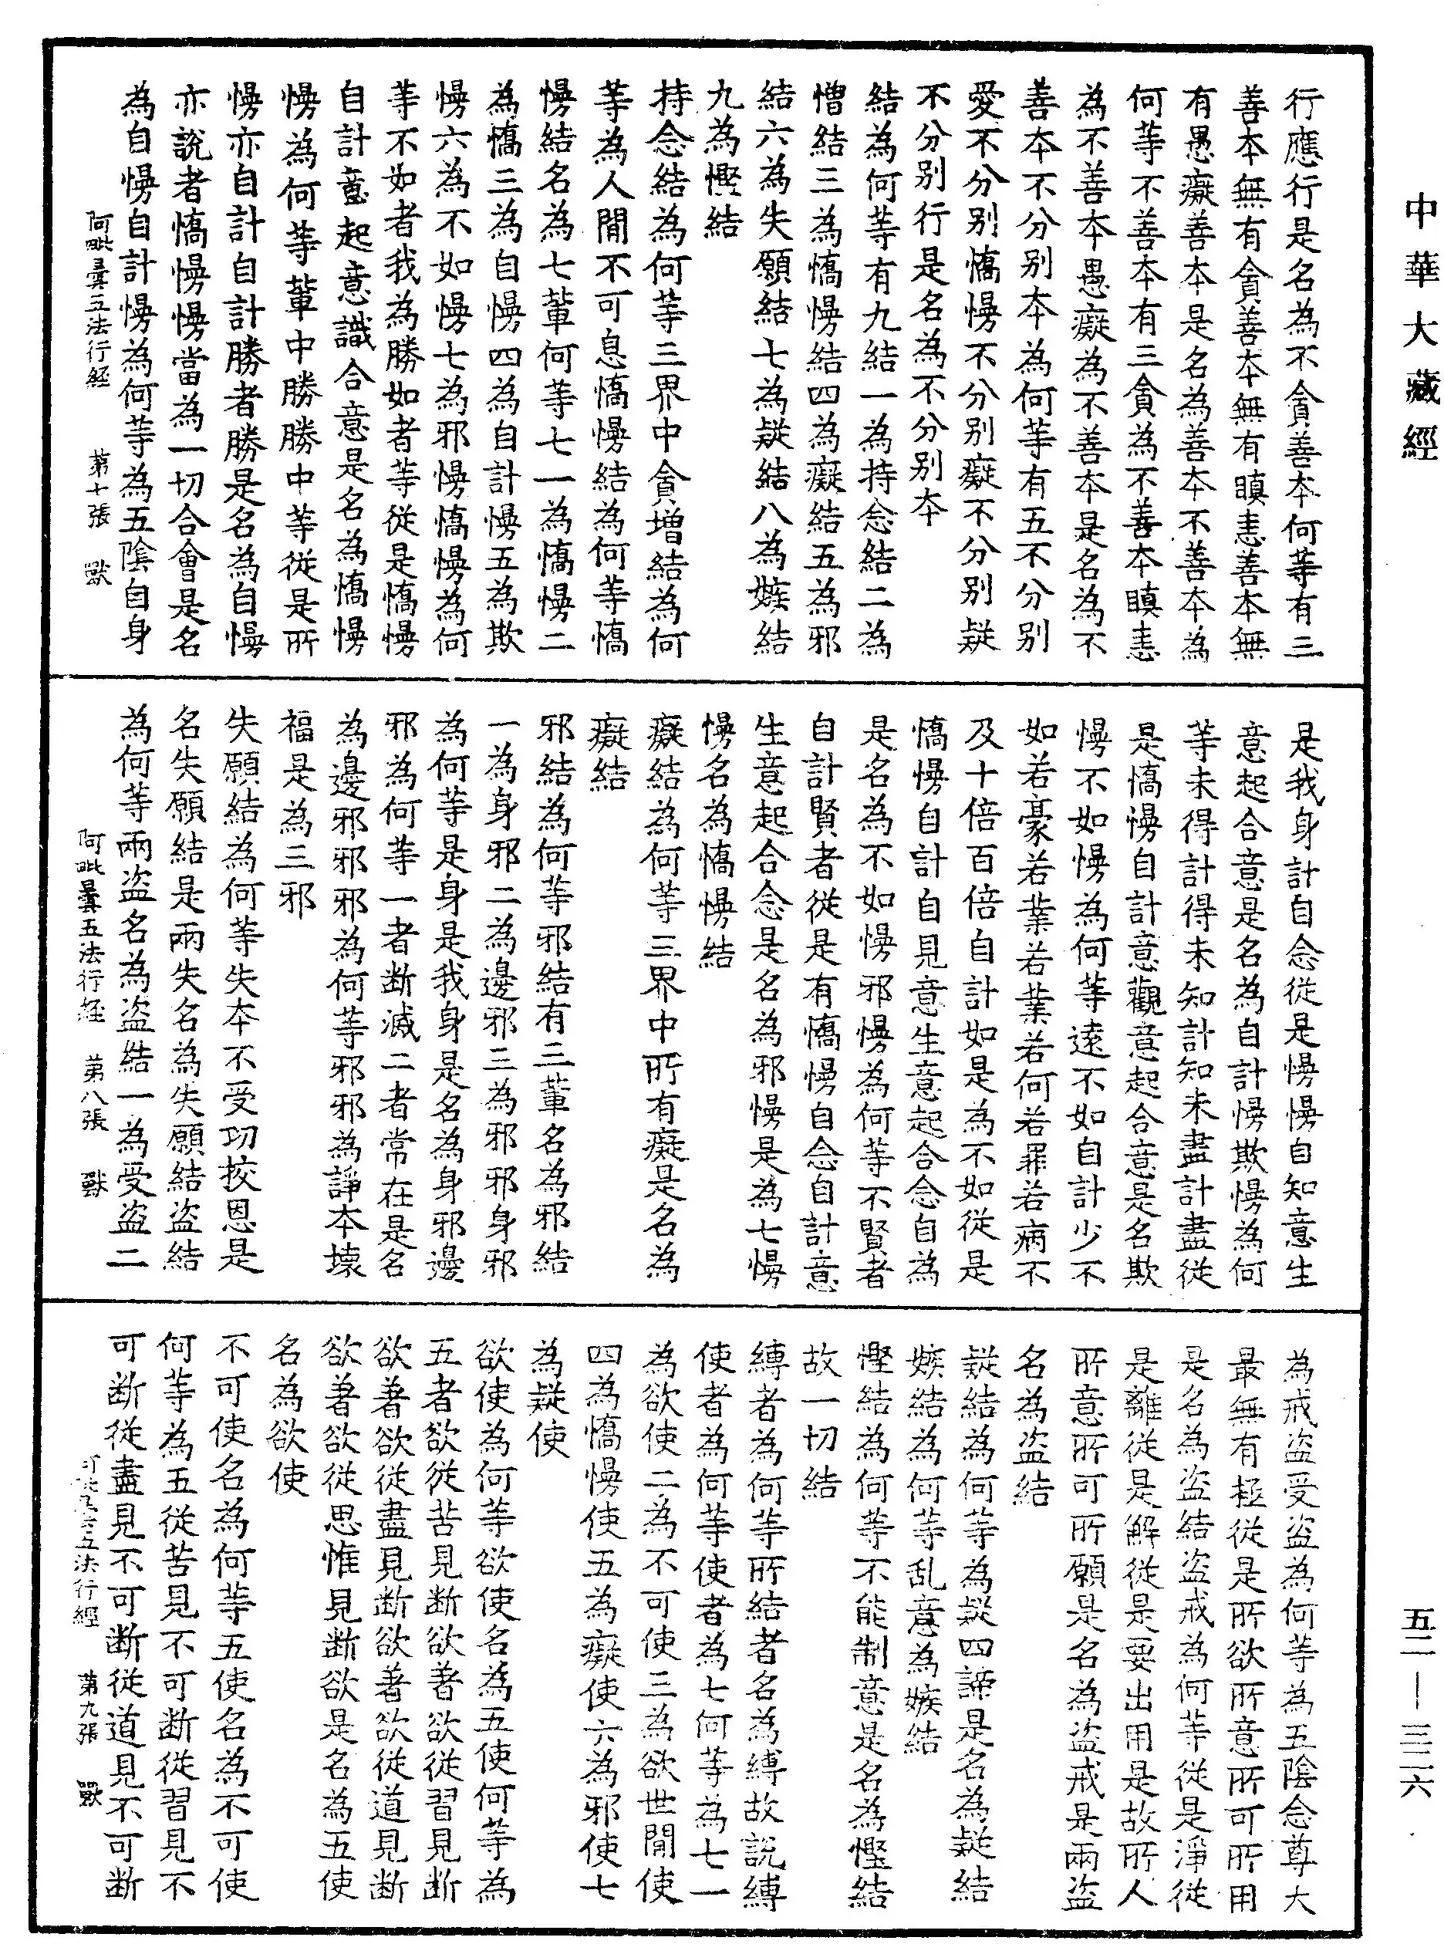 中華大藏經
行應行是名為不貪善本何等有三
善本無有貪善本無有瞋恚善本無
有愚癡善本是名為善本不善本為
何等不善本有三貪為不善本瞋恚
為不善本愚癡為不善本是名為不
善本不分別本為何等有五不分別
愛不分別憍慢不分別癡不分別疑
不分別行是名為不分別本
結為何等有九結一為持念結二為
憎結三為憍慢結四為癡結五為邪
結六為失願結七為疑結八為嫉結
九為慳結
持念結為何等三界中貪增結為何
等為人閒不可息憍慢結為何等憍
慢結名為七輩何等七一為憍慢二
為憍三為自慢四為自計慢五為欺
慢六為不如慢七為邪慢憍慢為何
等不如者我為勝如者等從是憍慢
自計意起意識合意是名為憍慢
慢為何等輩中勝勝中等從是所
慢亦自計自計勝者勝是名為自慢
亦說者憍慢慢當為一切合會是名
為自慢自計慢為何等為五陰自身
阿毗曇五法行經 第七張 獸
是我身計自念從是慢慢自知意生
意起合意是名為自計慢欺慢為何
等未得計得未知計知未盡計盡從
是憍慢自計意觀意起合意是名欺
慢不如慢為何等遠不如自計少不
如若豪若業若業若何若罪若病不
及十倍百倍自計如是為不如從是
憍慢自計自見意生意起合念自為
是名為不如慢邪慢為何等不賢者
自計賢者從是有憍慢自念自計意
生意起合念是名為邪慢是為七慢
慢名為憍慢結
癡結為何等三界中所有癡是名為
癡結
邪結為何等邪結有三輩名為邪結
一為身邪二為邊邪三為邪邪身邪
為何等是身是我身是名為身邪邊
邪為何等一者斷滅二者常在是名
為邊邪邪邪為何等邪邪為諍本壞
福是為三邪
失願結為何等失本不受功挍恩是
名失願結是兩失名為失願結盜結
為何等兩盜名為盜結一為受盜二
阿毗曇五法行經 第八張 獸
為戒盜受盜為何等為五陰念尊大
最無有極從是所欲所意所可所用
是名為盜結盜戒為何等從是淨從
是離從是解從是要出用是故所人
所意所可所願是名為盜戒是兩盜
名為盜結
疑結為何等為疑四諦是名為疑結
嫉結為何等乱意為嫉結
慳結為何等不能制意是名為慳結
故一切結
縛者為何等所結者名為縛故說縛
使者為何等使者為七何等為七一
為欲使二為不可使三為欲世閒使
四為憍慢使五為癡使六為邪使七
為疑使
欲使為何等欲使名為五使何等為
五者欲從苦見斷欲著欲從習見斷
欲著欲從盡見斷欲著欲從道見斷
欲著欲從思惟見斷欲是名為五使
名為欲使
不可使名為何等五使名為不可使
何等為五從苦見不可斷從習見不
可斷從盡見不可斷從道見不可斷
五法行經 第九張 獸
五二—三二六